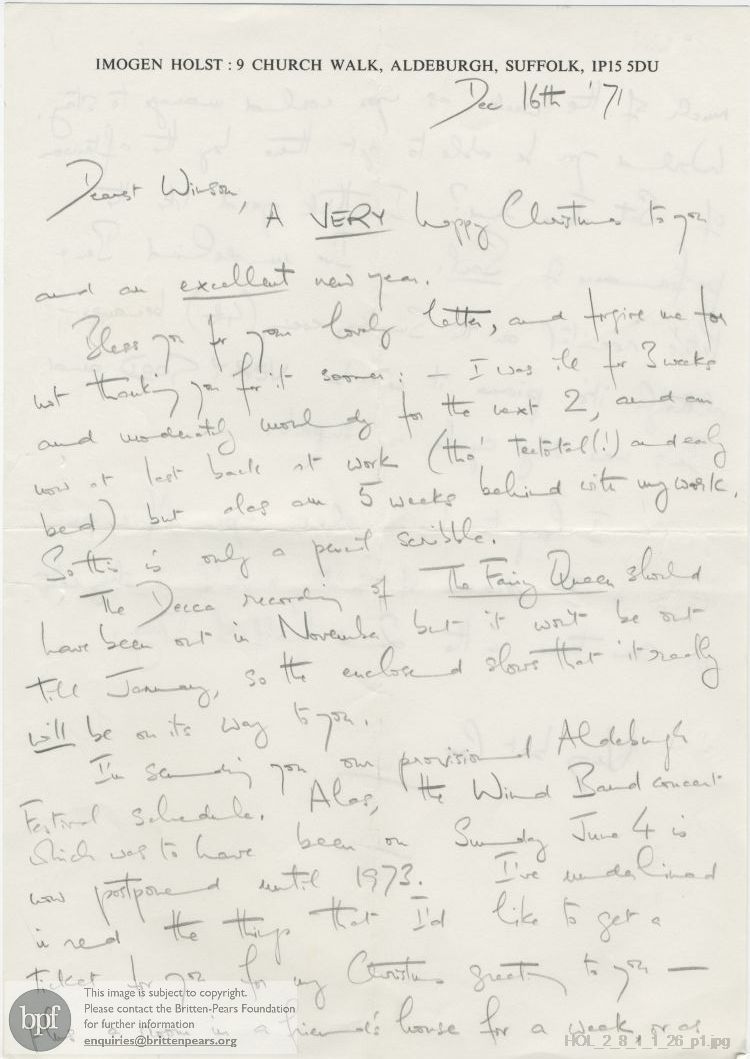 IMOGEN HOLST : 9 CHURCH WALK, ALDEBURGH, SUFFOLK, IP15 5DU
Dec 16th '71
Dearest Winson,
A VERY happy Christmas to you
and an excellent new year.
Bless you for your lovely letter, and forgive me for
not thanking you for it sooner: – I was ill for 3 weeks
and moderately mouldy for the next 2, and am
now at last back at work (tho' teetotal(!) and early
bed) but alas am 5 weeks behind with my work.
So this is only a pencil scribble.
The Decca recording of The Fairy Queen should
have been out in November but it won't be out
till January, so the enclosed shows that it really
will be on its way to you.
I'm sending you our provisional Aldeburgh
Festival schedule. Alas, the Wind Band concert
which was to have been on Sunday June 4 is
now postponed until 1973. I've underlined
in red the things that I'd like to get a
ticket for you for my Christmas greeting to you —
a room in a friend's house for a week, or as
bpf
This image is subject to copyright.
Please contact the Britten-Pears Foundation
for further information
enquiries@brittenpears.org
HOL_2_8_1_1_26_p1.jpg